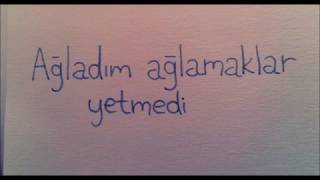 Ağladım ağlamaklar
yetmedi